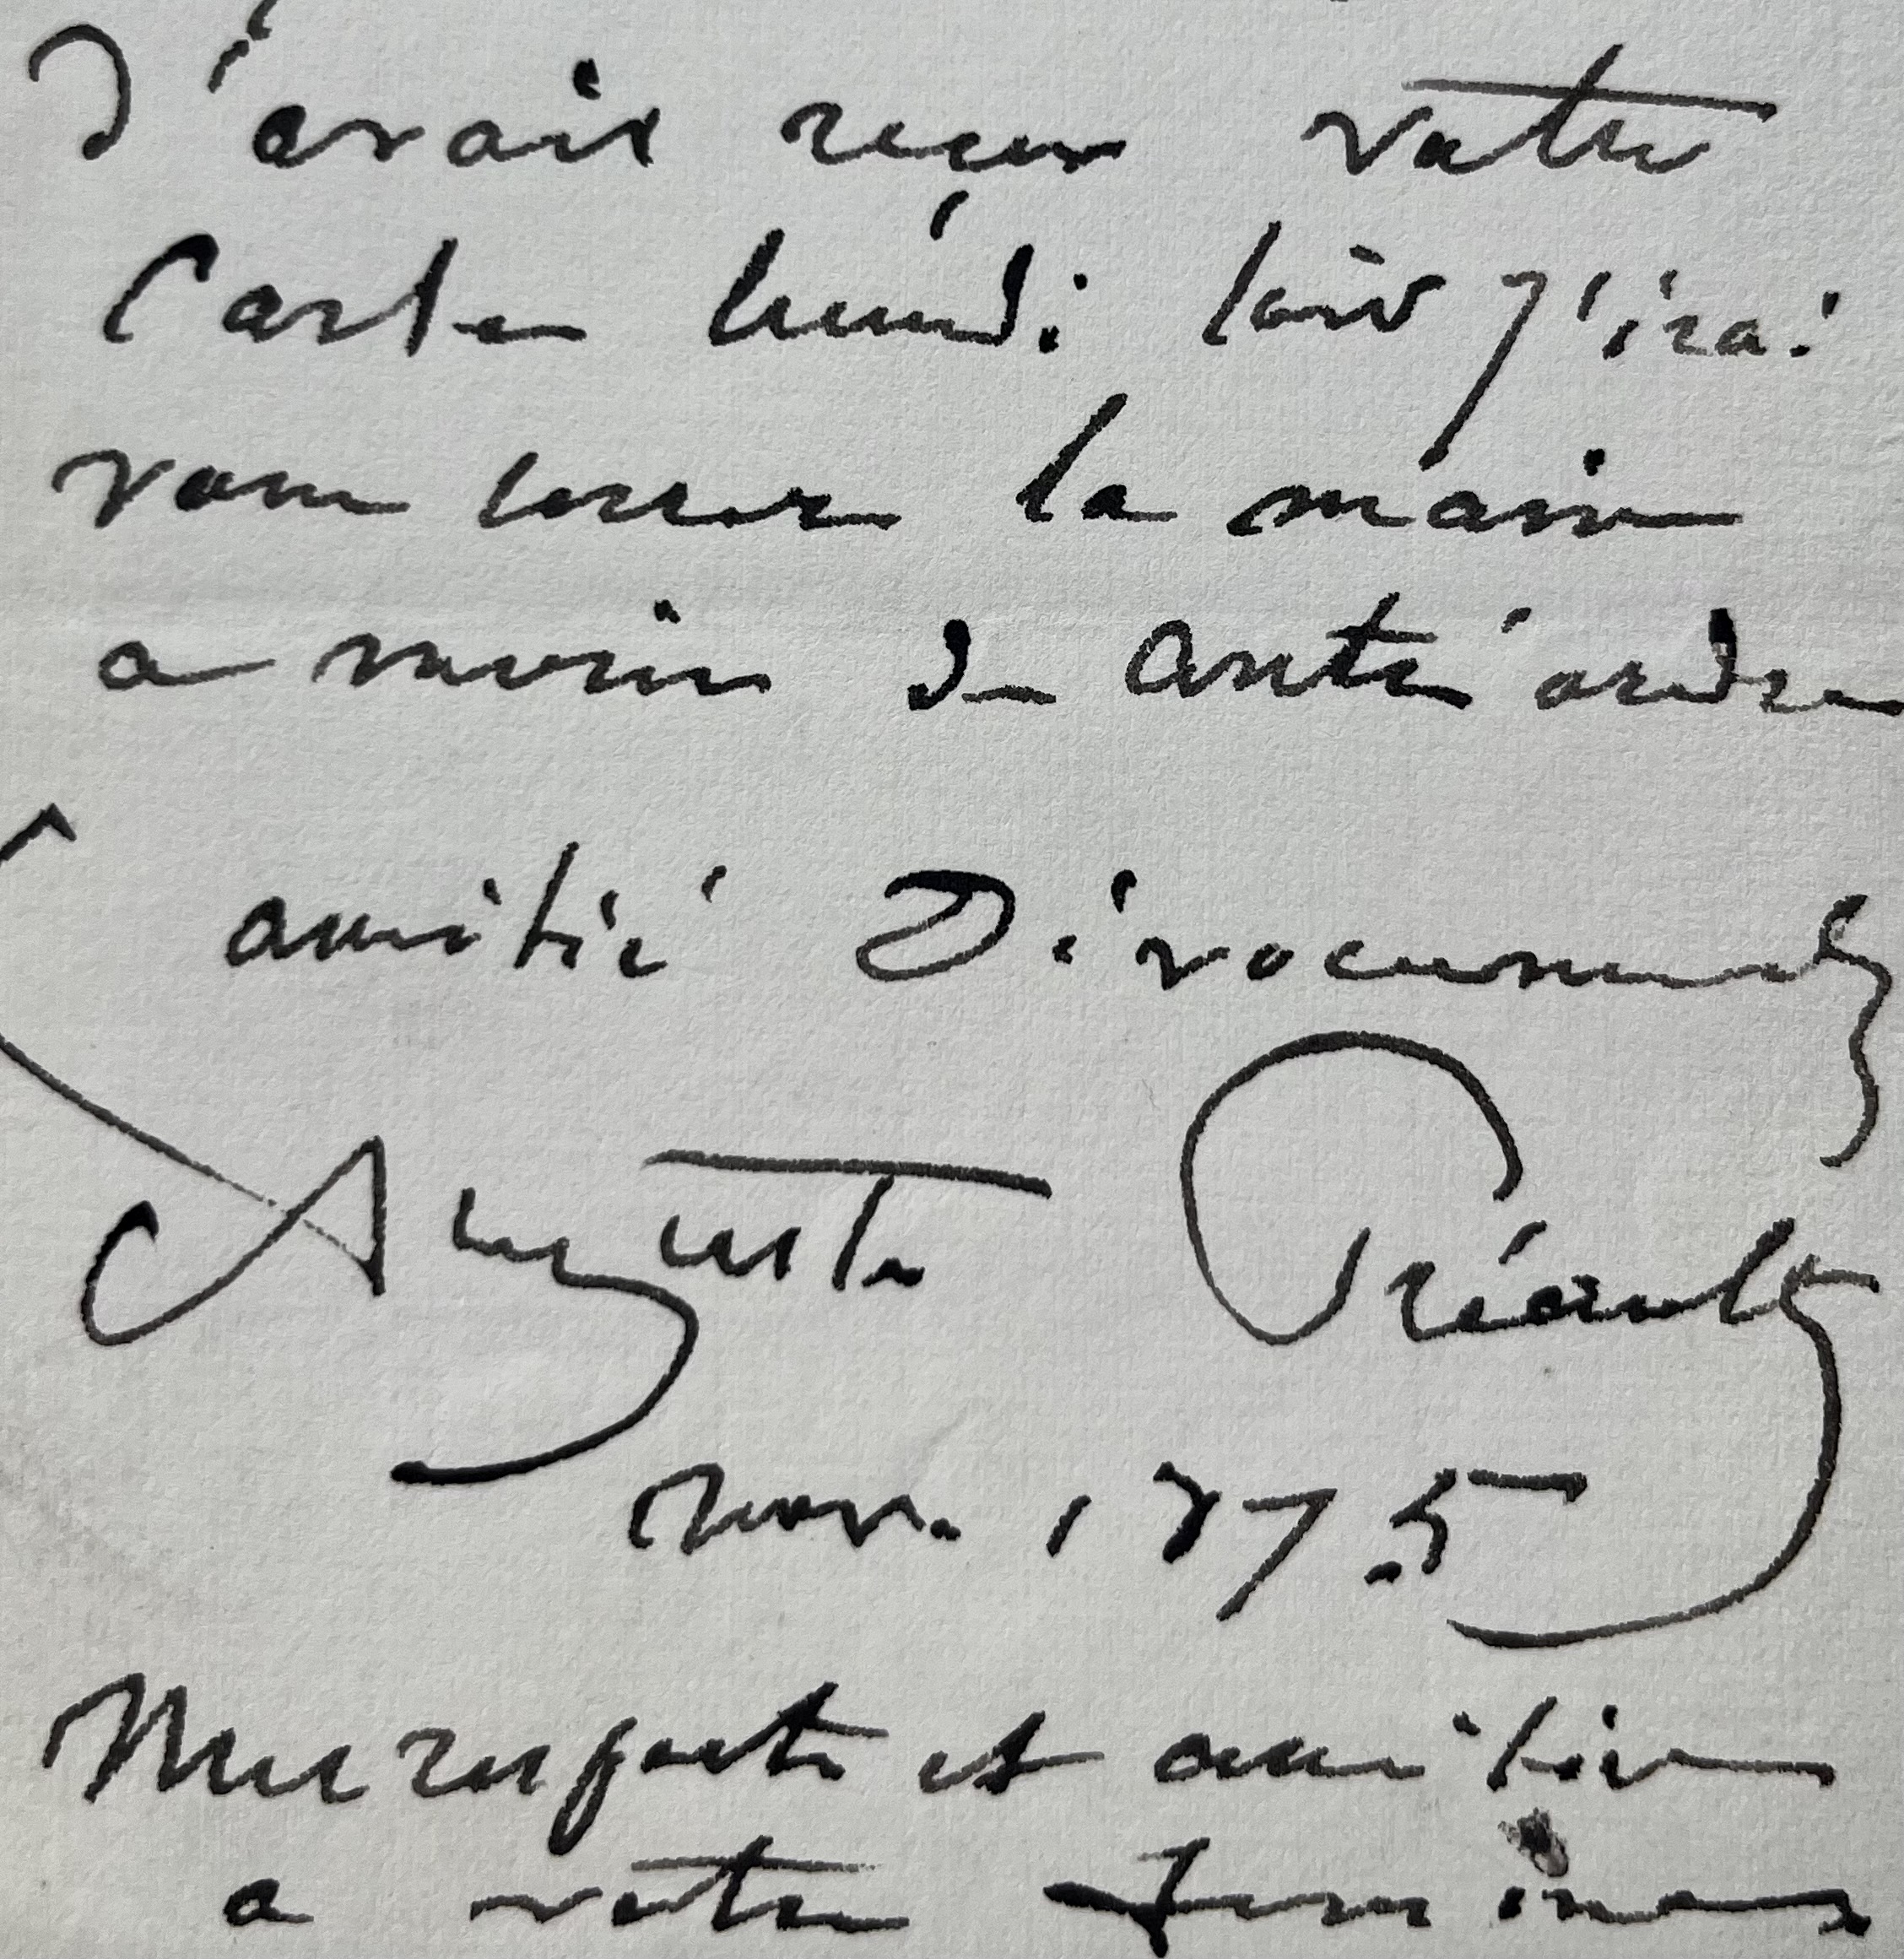 J'avais reçu votre
Carte lundi soir j'irai
vous serrer la main
a moins de contre'ordre
amitié Dévouement
Auguste Préault
nov. 1875
Mes respects et amitiés
a votre